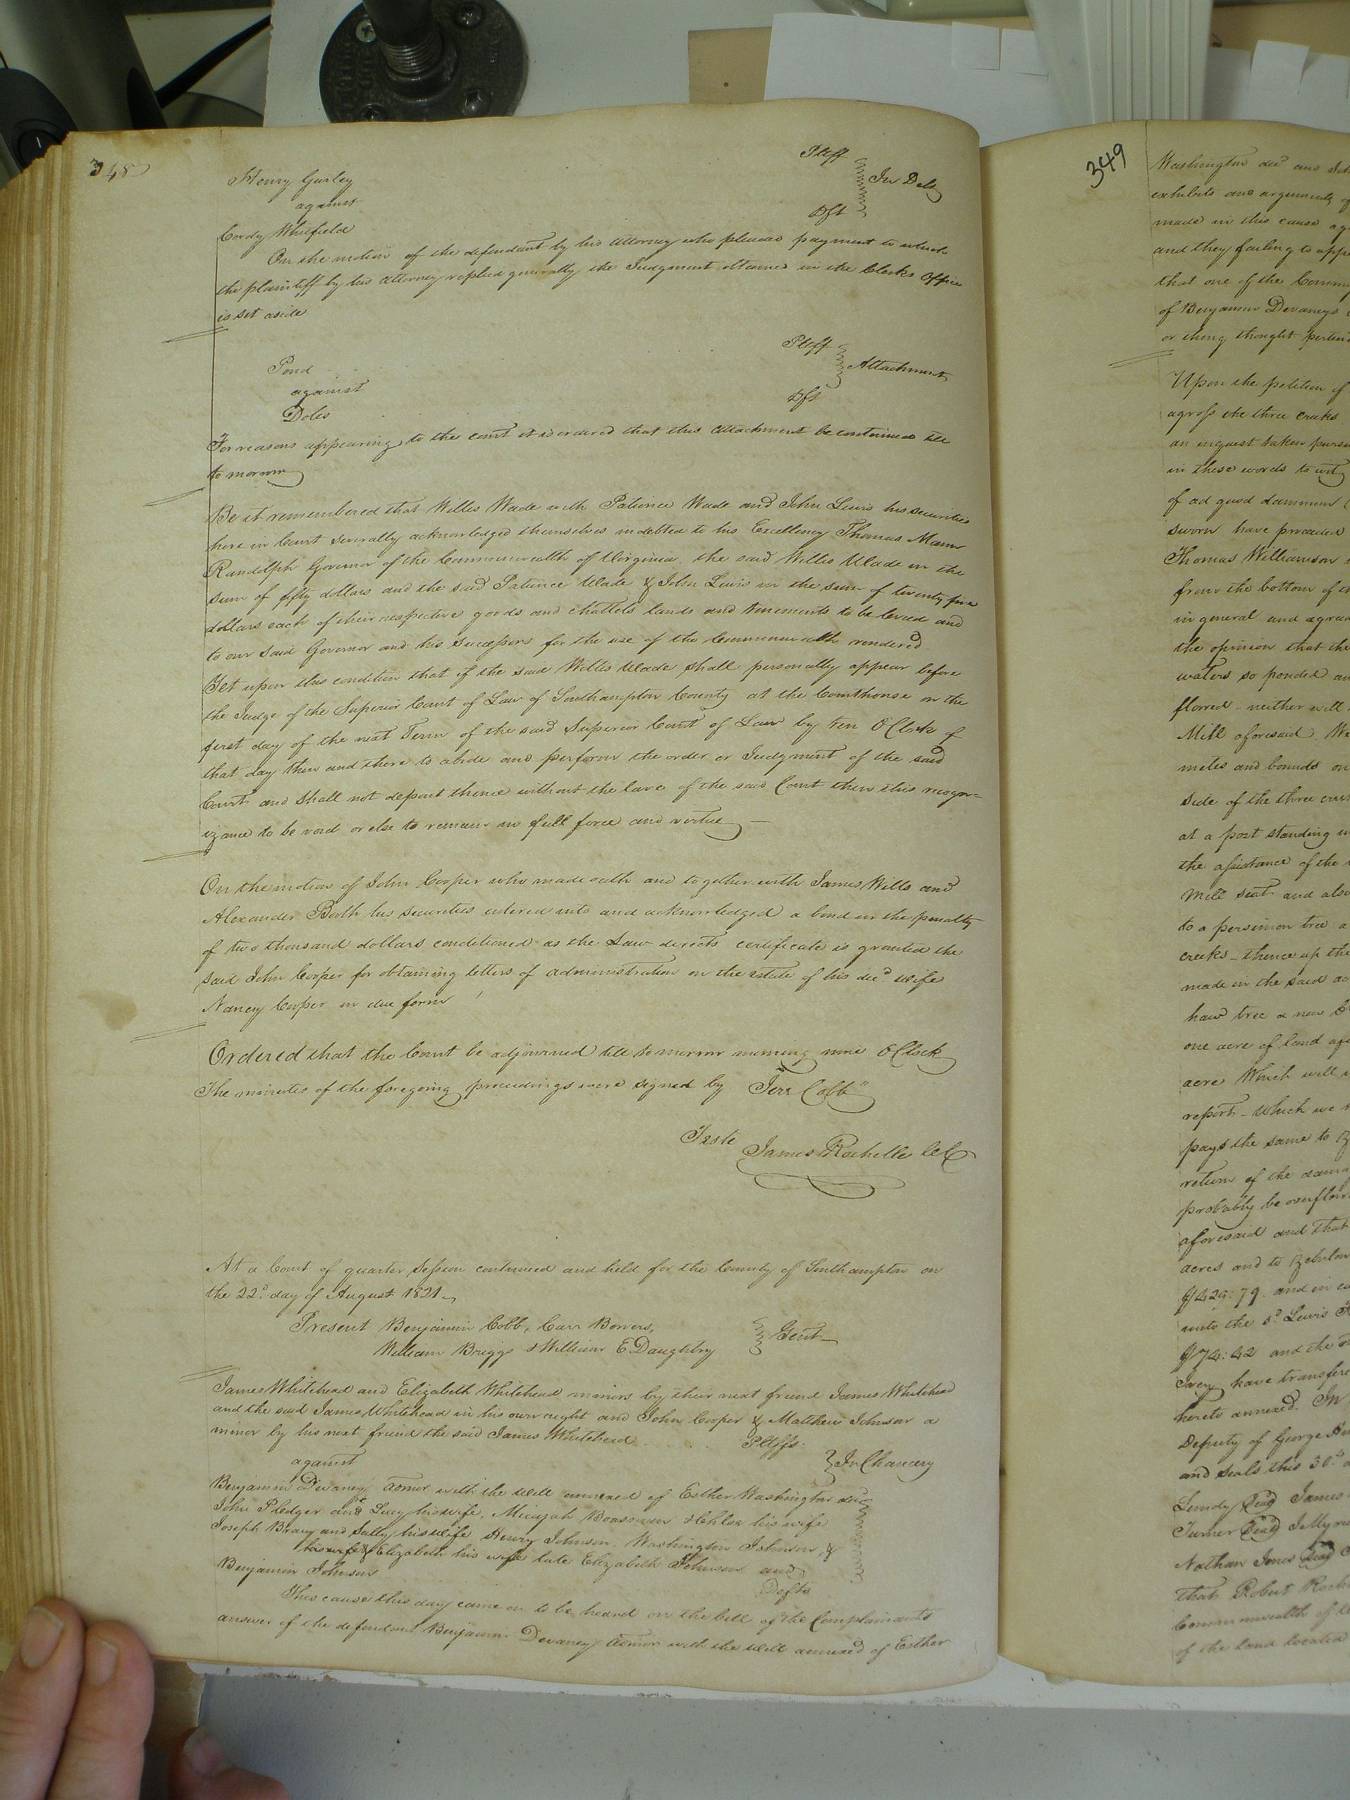 348
Henry Gurley Pltff
against In Debt
Cordy Whitfield Dft
On the motion of the defendant by his attorney who pleaded payment to which
the plaintiff by his attorney replied generally the Judgment obtained in the Clerks Office
is set aside
Pond Pltff
against Attachment
Doles Dft
For reasons appearing to the court it is ordered that this attachment be continued till
tomorrow
Be it remembered that Willis Wade with Patience Wade and John Lewis his securities
here in Court severally acknowledged themselves indebted to his Excellency Thomas Mann
Randolph Govenor of the Commonwealth of Virginia the said Willis Wade in the
sum of fifty dollars and the said Patience Wade & John Lewis in the sum of twenty five
dollars each of their respective goods and chattels lands and tenements to be levied and
to our said Governor and his successors for the use of the Commonwealth rendered
Yet upon this condition that if the said Willis Wade shall personally appear before
the Judge of the Superior Court of Law of Southampton County at the Courthouse on the
first day of the next Term of the said Superior Court of Law by ten O'Clock of
that day then and there to abide and perform the order or Judgment of the said
Court and shall not depart thence without the leave of the said Court then this recogn-
izance to be void or else to remain in full force and virtue
On the motion of John Cooper who made oath and together with James Wills and
Alexander Booth his securities entered into and acknowledged a bond in the penalty
of two thousand dollars conditioned as the Law directs certificate is granted the
said John Cooper for obtaining letters of administration on the estate of his decd wife
Nancy Cooper in due form
Ordered that the Court be adjourned till tomorrow morning nine O'Clock
The minutes of the foregoing proceedings were signed by "Jere Cobb"
Teste
James Rochelle ClC
At a Court of quarter Session continued and held for the County of Southampton on
the 22d day of August 1821
Present Benjamin Cobb, Carr Bowers,
William Briggs & William E Daughtry Gent
James Whitehead and Elizabeth Whitehead minors by their next friend James Whitehead
and the said James Whitehead in his own right and John Cooper & Matthew Johnson a
minor by his next friend the said James Whitehead Pltffs
against In Chancery
Benjamin Devaney admor with the will annexed of Esther Washington decd
John Pledger and Lucy his wife, Micajah & Chloe his wife
Joseph and Sally his wife Henry Johnson, Washington Johnson, &
his wife & Elizabeth his wife late Elizabeth Johnson and
Benjamin Johnson Defts
This cause this day came on to be heard on the bill of the Complainants
answer of the defendant Benjamin Devaney admor with the will annexed of Esther
349
Washington decd and
exhibits and arguments of
made in this cause
and they failing to
that one of the
of Benjamin Devaneys
or thing thought
Upon the petition of
across the three creeks
an inquest taken
in these words to wit
of ad quod damnum
sworn have proceeded
Thomas Williamson
from the bottom of
in general and
the opinion that the
waters so ponded
flowed neither will
Mill aforesaid We
metes and bounds on
side of the three
at a post standing
the assistance of the
Mill seat and also
to a persimon tree a
creeks thence up the
made in the said
haw tree a new
one acre of land
acre Which will
report which we
pays the same to
return of the
probably be
aforesaid and that
acres and to
$429:79 and in
unto the sd Lewis
$74:42 and the
Ivey have
hereto annexed. In
Deputy of George
and seals this 30th
Lundy Seal James
Turner Seal
Nathan Jones Seal
that Robert
Commonwealth of
of the land located